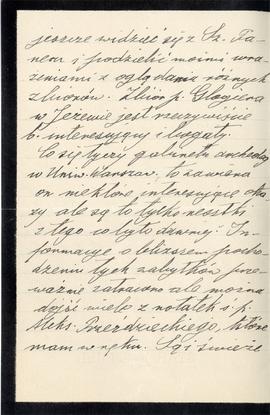 jeszcze widzieć się z Sz. Pa-
nem i podzielić moimi wra-
żeniami z oglądania różnych
zbiorów. Zbiór p. Glogiera
w Jeżewie jest rzeczywiście
b. interesujący i bogaty.
Co się tyczy gabinetu archeolog
w Uniw. Warszaw. to zawiera
on niektóre interesujące oka-
zy ale są to tylko resztki
z tego co było dawniej. In-
formacye o bliższem pocho-
dzeniu tych zabytków prze-
ważnie zatracono ale można
dojść wiele z notatek ś. p.
Aleks. Przezdzieckiego, które
mam w ręku. Są i świeże